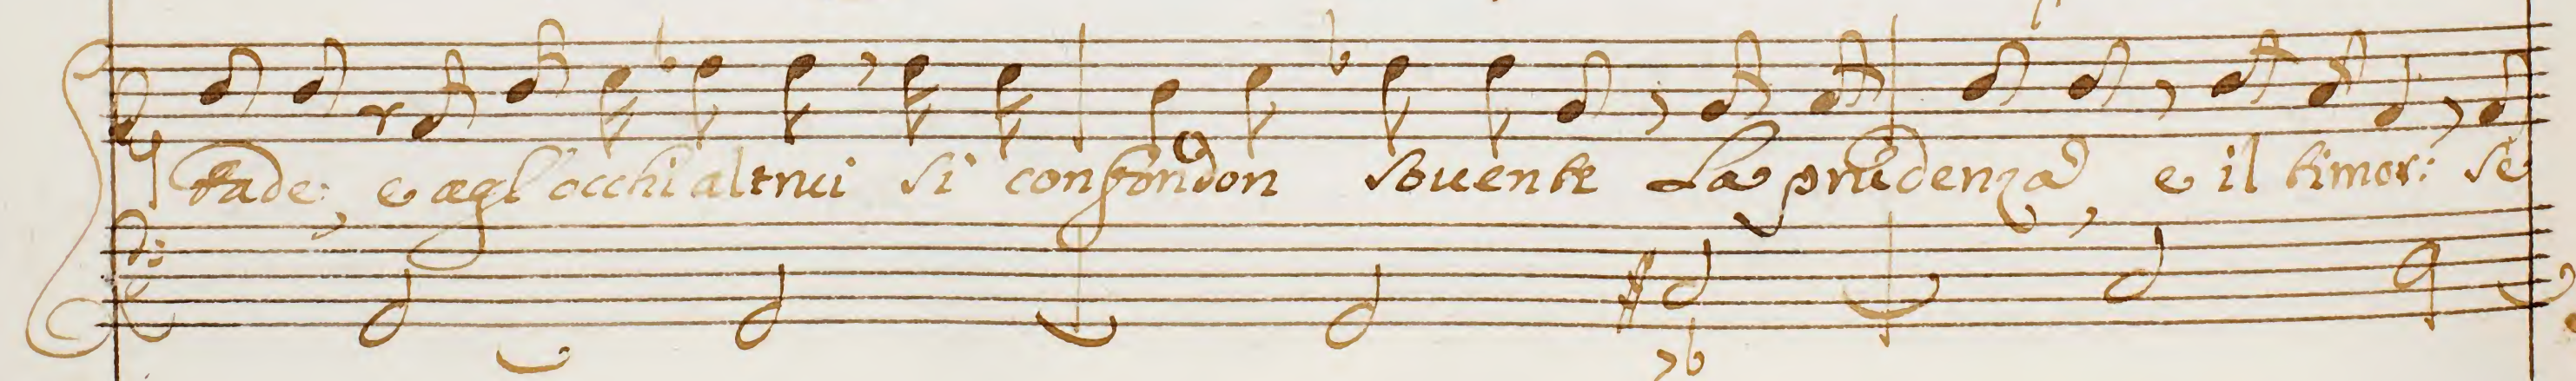 tade: e agl'occhi altrui si confondon souente La prudenza e il timor: se
7b